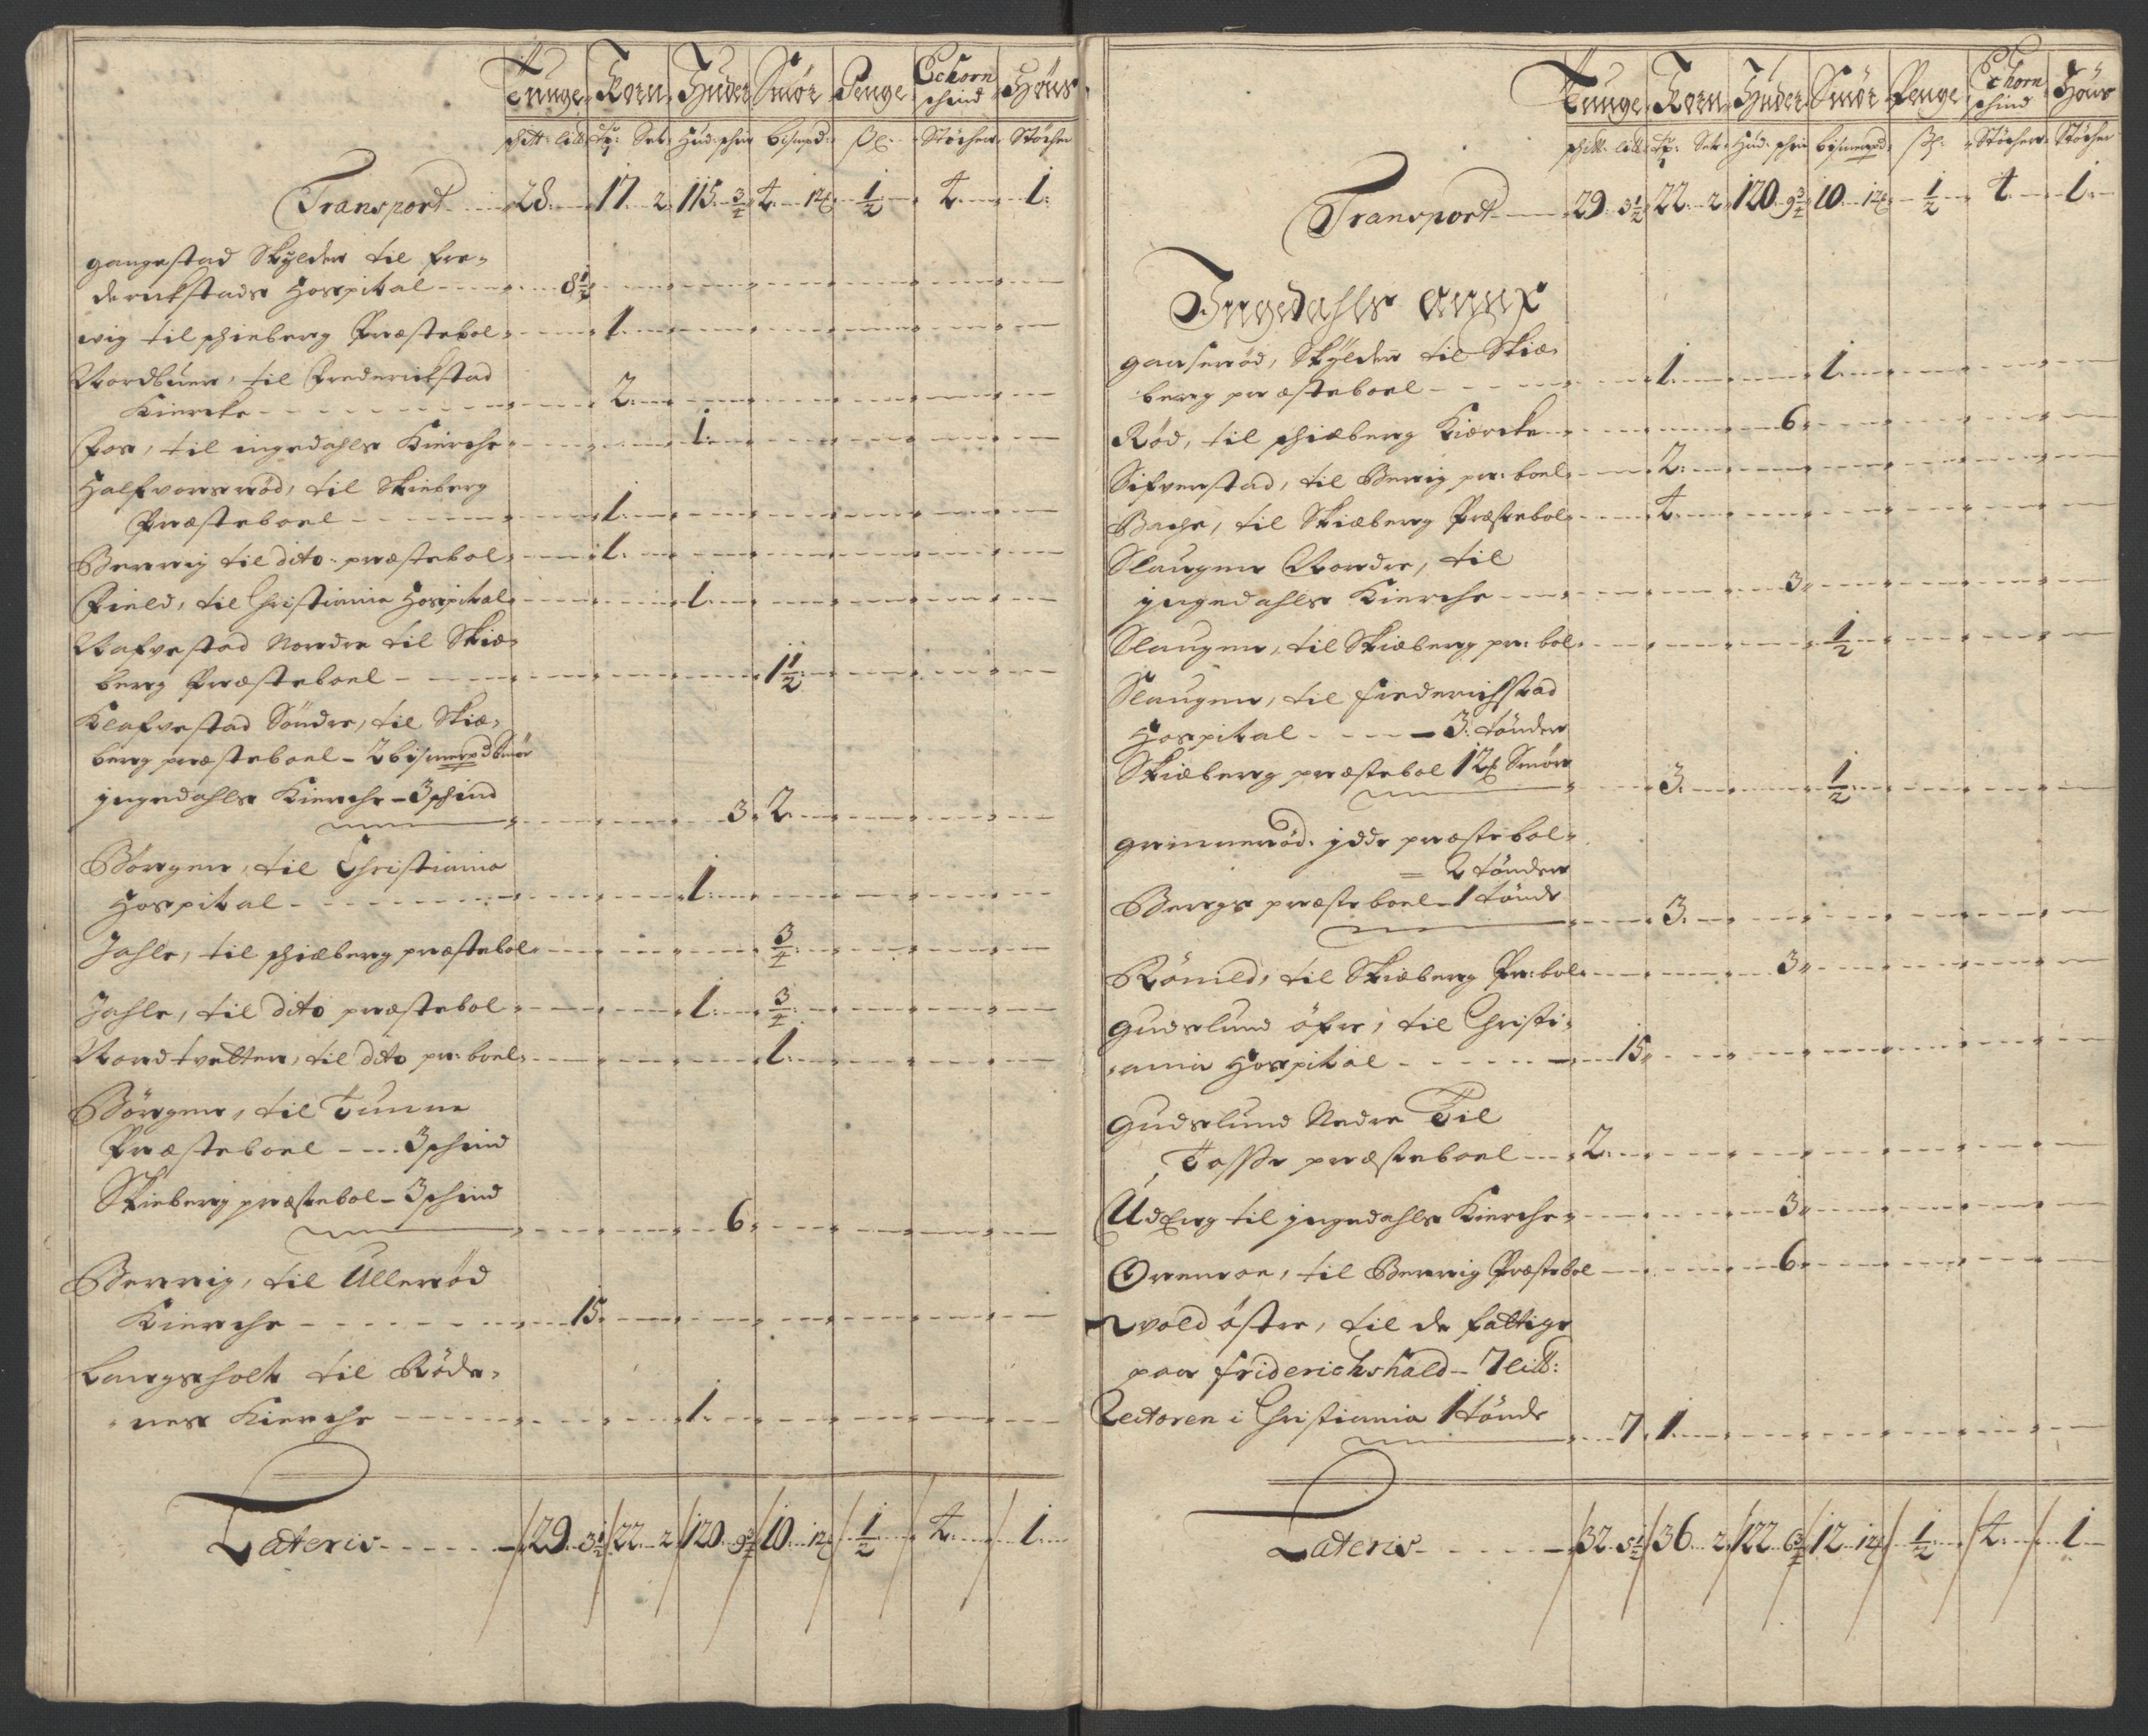 Tunge Korn Huder Smør Penge Echorn schind Høns
schött: litt: Tø: Set: Hud: schin bismpd: sk Stöcher Stöcher
Transport 28. 17. 2. 115. 3/4 4. 12 1/2 4. 1:
gangestad Skylder til Fre=
derichstads Hospital 8 1/2
wig til schieberg Præstebol 1.
Nordbuen, til Frederichstad
Kiercke 2.
Foss, til ingedahls Kierche 1.
Halfvorsrød, til Skieberg
Præsteboel 1.
Berrig til dito præstebol 1.
Field, til Christiania Hospital 1.
Nafvestad Nordre til Skie=
berg Præsteboel 1 1/2
Klafvestad Söndre, til Skie=
berg præsteboel - 2 bismerpd Smør
jngedahls Kierche - 3 schind
3. 2.
Borgen, til Christiania
Hospital 1.
Jahle, til schieberg præstebol 3/4
Jahle, til dito præstebol 1. 3/4
Nordtvetten, til dito pr: boel 1.
Börgen, til Tunne
Præsteboel - 3 schind
Skieberg præstebol - 3 schind
6.
Berrig, til Ullerød
Kierche 15.
Langsholt til Röde=
nes Kierche 1.
Lateris 29. 3 1/2 22. 2 120. 9 3/4 10. 12 1/2 4. 1.
Tunge Korn Huder Smør Penge Echorn schind Høns
schött: litt: Tø: Set: Hud: schin bismerpd: sk: Stöcher Stöcher
Transport 29. 3 1/2 22. 2 120. 9 3/4 10. 12 1/2 4. 1.
Ingedahls annex
gaaserød, Skylder til Skie=
berg præsteboel 1. 1.
Rød, til schieberg Kiercke 6
Sifverstad, til Berrig pr: boel 2.
Bache, til Skieberg Præstebol 4.
Slaugen Nordre, til
jngedahls Kierche 3
Slaugen, til Skieberg pr: bol 1/2
Slaugen, til Frederichstad
Hospital - 3. tönder
Skieberg præstebol 12 Smør
3. 1/2
grimmerød. jdde præstebol
= 2 tönder
Bergs præsteboel - 1 tönde
3.
Rönild, til Skieberg Pr: bol 3
Gudslund öfre, til Christi=
ania Hospital 15
Gudslund Nedre Til
Tosse præsteboel 2.
Udeng til jngedahls Kierche 3
Oremoe, til Berrig Præstebol 6
qvold östre, til de fattige
paa friderichshald - 7 litt:
Lectoren i Christiania 1 tönde
7. 1.
Lateris 32. 5 1/2 36. 2 122. 6 3/4 12. 12 1/2 4. 1